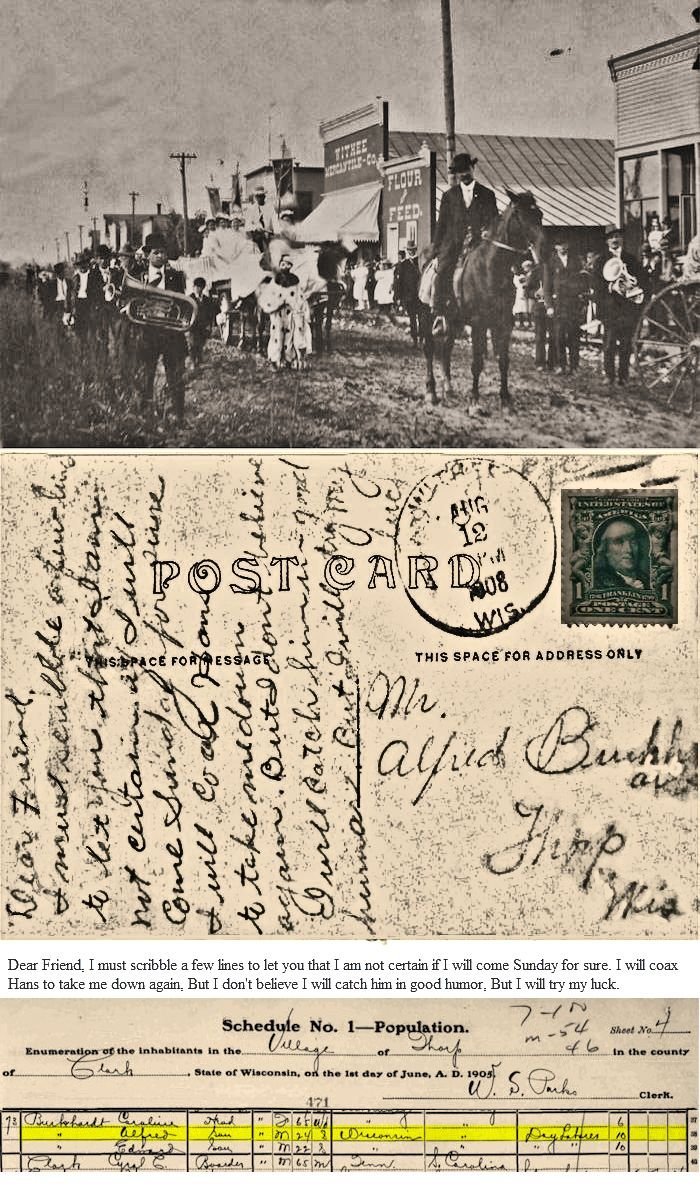 WITHEE
MERCANTILE-CO.
FLOUR
FEED
POST CARD
THIS SPACE FOR MESSAGE
THIS SPACE FOR ADDRESS ONLY
AUG
12
PM
1908
WIS.
UNITED STATES OF
AMERICA
1 FRANKLIN 1
POSTAGE
ONE CENT
Dear Friend,
I must scribble a few lines
to let you that I am
not certain if I will
come Sunday for sure
I will coax Hans
to take me down
again. But I don't believe
I will catch him in good
humor But I will try my
luck
Mr.
Alfred
Thorp
Wis
Dear Friend, I must scribble a few lines to let you that I am not certain if I will come Sunday for sure. I will coax
Hans to take me down again, But I don't believe I will catch him in good humor, But I will try my luck.
Schedule No. 1—Population.
Sheet No. 4
m-54
46
Enumeration of the inhabitants in the Village of Thorp in the county
of Clark, State of Wisconsin, on the 1st day of June, A. D. 1905.
W. S. Parks Clerk.
471
73 Burkhardt Caroline Head " F 65 Wd " " 6
" Alfred Son " M 24 S Wisconsin " Day Laborer 10
" Edward Son " M 22 S " " " " 10
Clark Cyral C. Boarder " M 65 M Tenn. S. Carolina